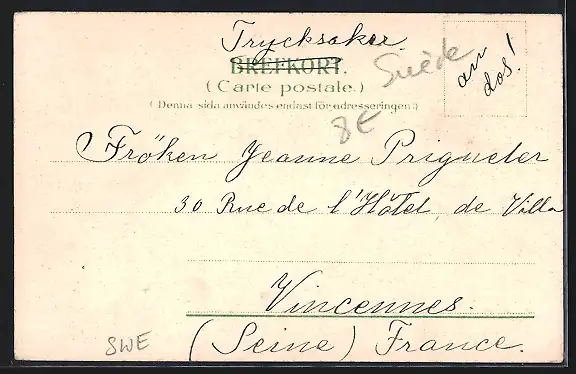 Trycksaker.
BREFKORT.
(Carte postale.)
(Denna sida användes endast för adresseringen.)
Suède
au dos!
8€
Fröken Jeanne Prigueter
30 Rue de l'Hôtel de Villa
Vincennes.
(Seine) France.
SWE